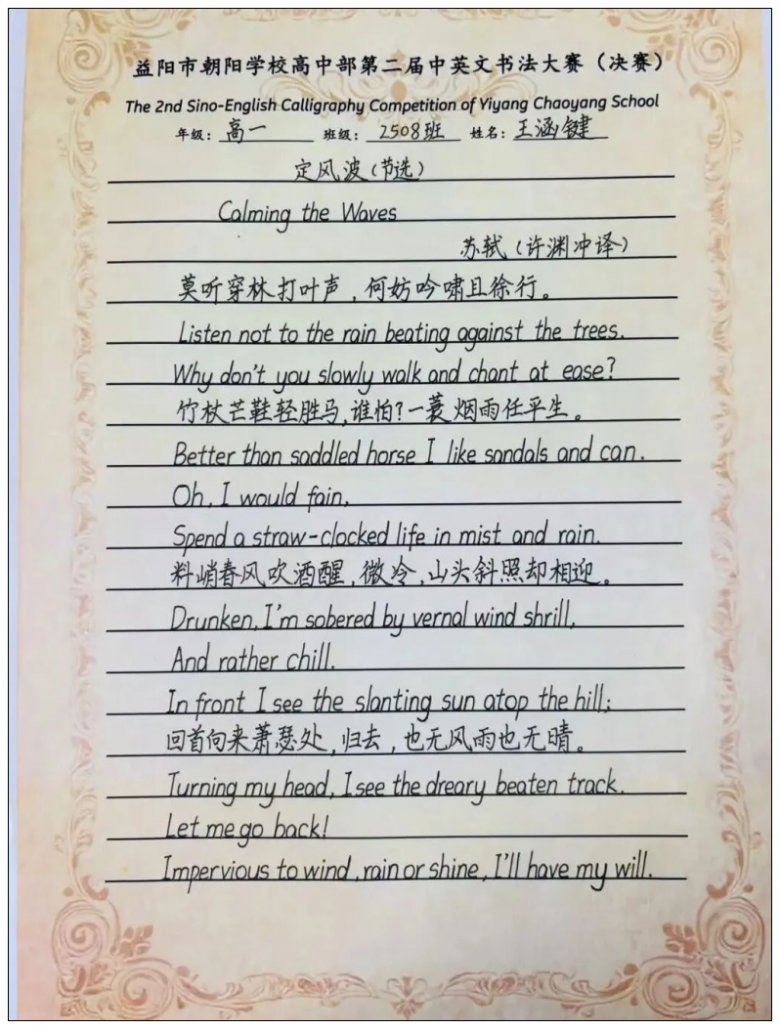 益阳市朝阳学校高中部第二届中英文书法大赛（决赛）
The 2nd Sino-English Calligraphy Competition of Yiyang Chaoyang School
年级：高一 班级：2508班 姓名：王涵键
定风波(节选)
Calming the Waves
苏轼(许渊冲译)
莫听穿林打叶声,何妨吟啸且徐行。
Listen not to the rain beating against the trees.
Why don't you slowly walk and chant at ease?
竹杖芒鞋轻胜马,谁怕?一蓑烟雨任平生。
Better than saddled horse I like sandals and can.
Oh, I would fain,
Spend a straw-clocked life in mist and rain.
料峭春风吹酒醒,微冷,山头斜照却相迎。
Drunken, I'm sobered by vernal wind shrill,
And rather chill.
In front I see the slanting sun atop the hill;
回首向来萧瑟处,归去,也无风雨也无晴。
Turning my head, I see the dreary beaten track.
Let me go back!
Impervious to wind, rain or shine, I'll have my will.